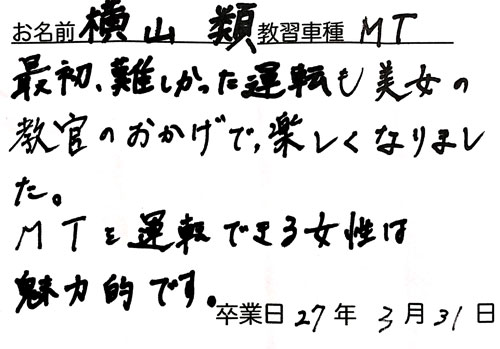 お名前 横山 類 教習車種 MT
最初、難しかった運転も美女の
教官のおかげで、楽しくなりまし
た。
MTを運転できる女性は
魅力的です。
卒業日 27年 3月 31日